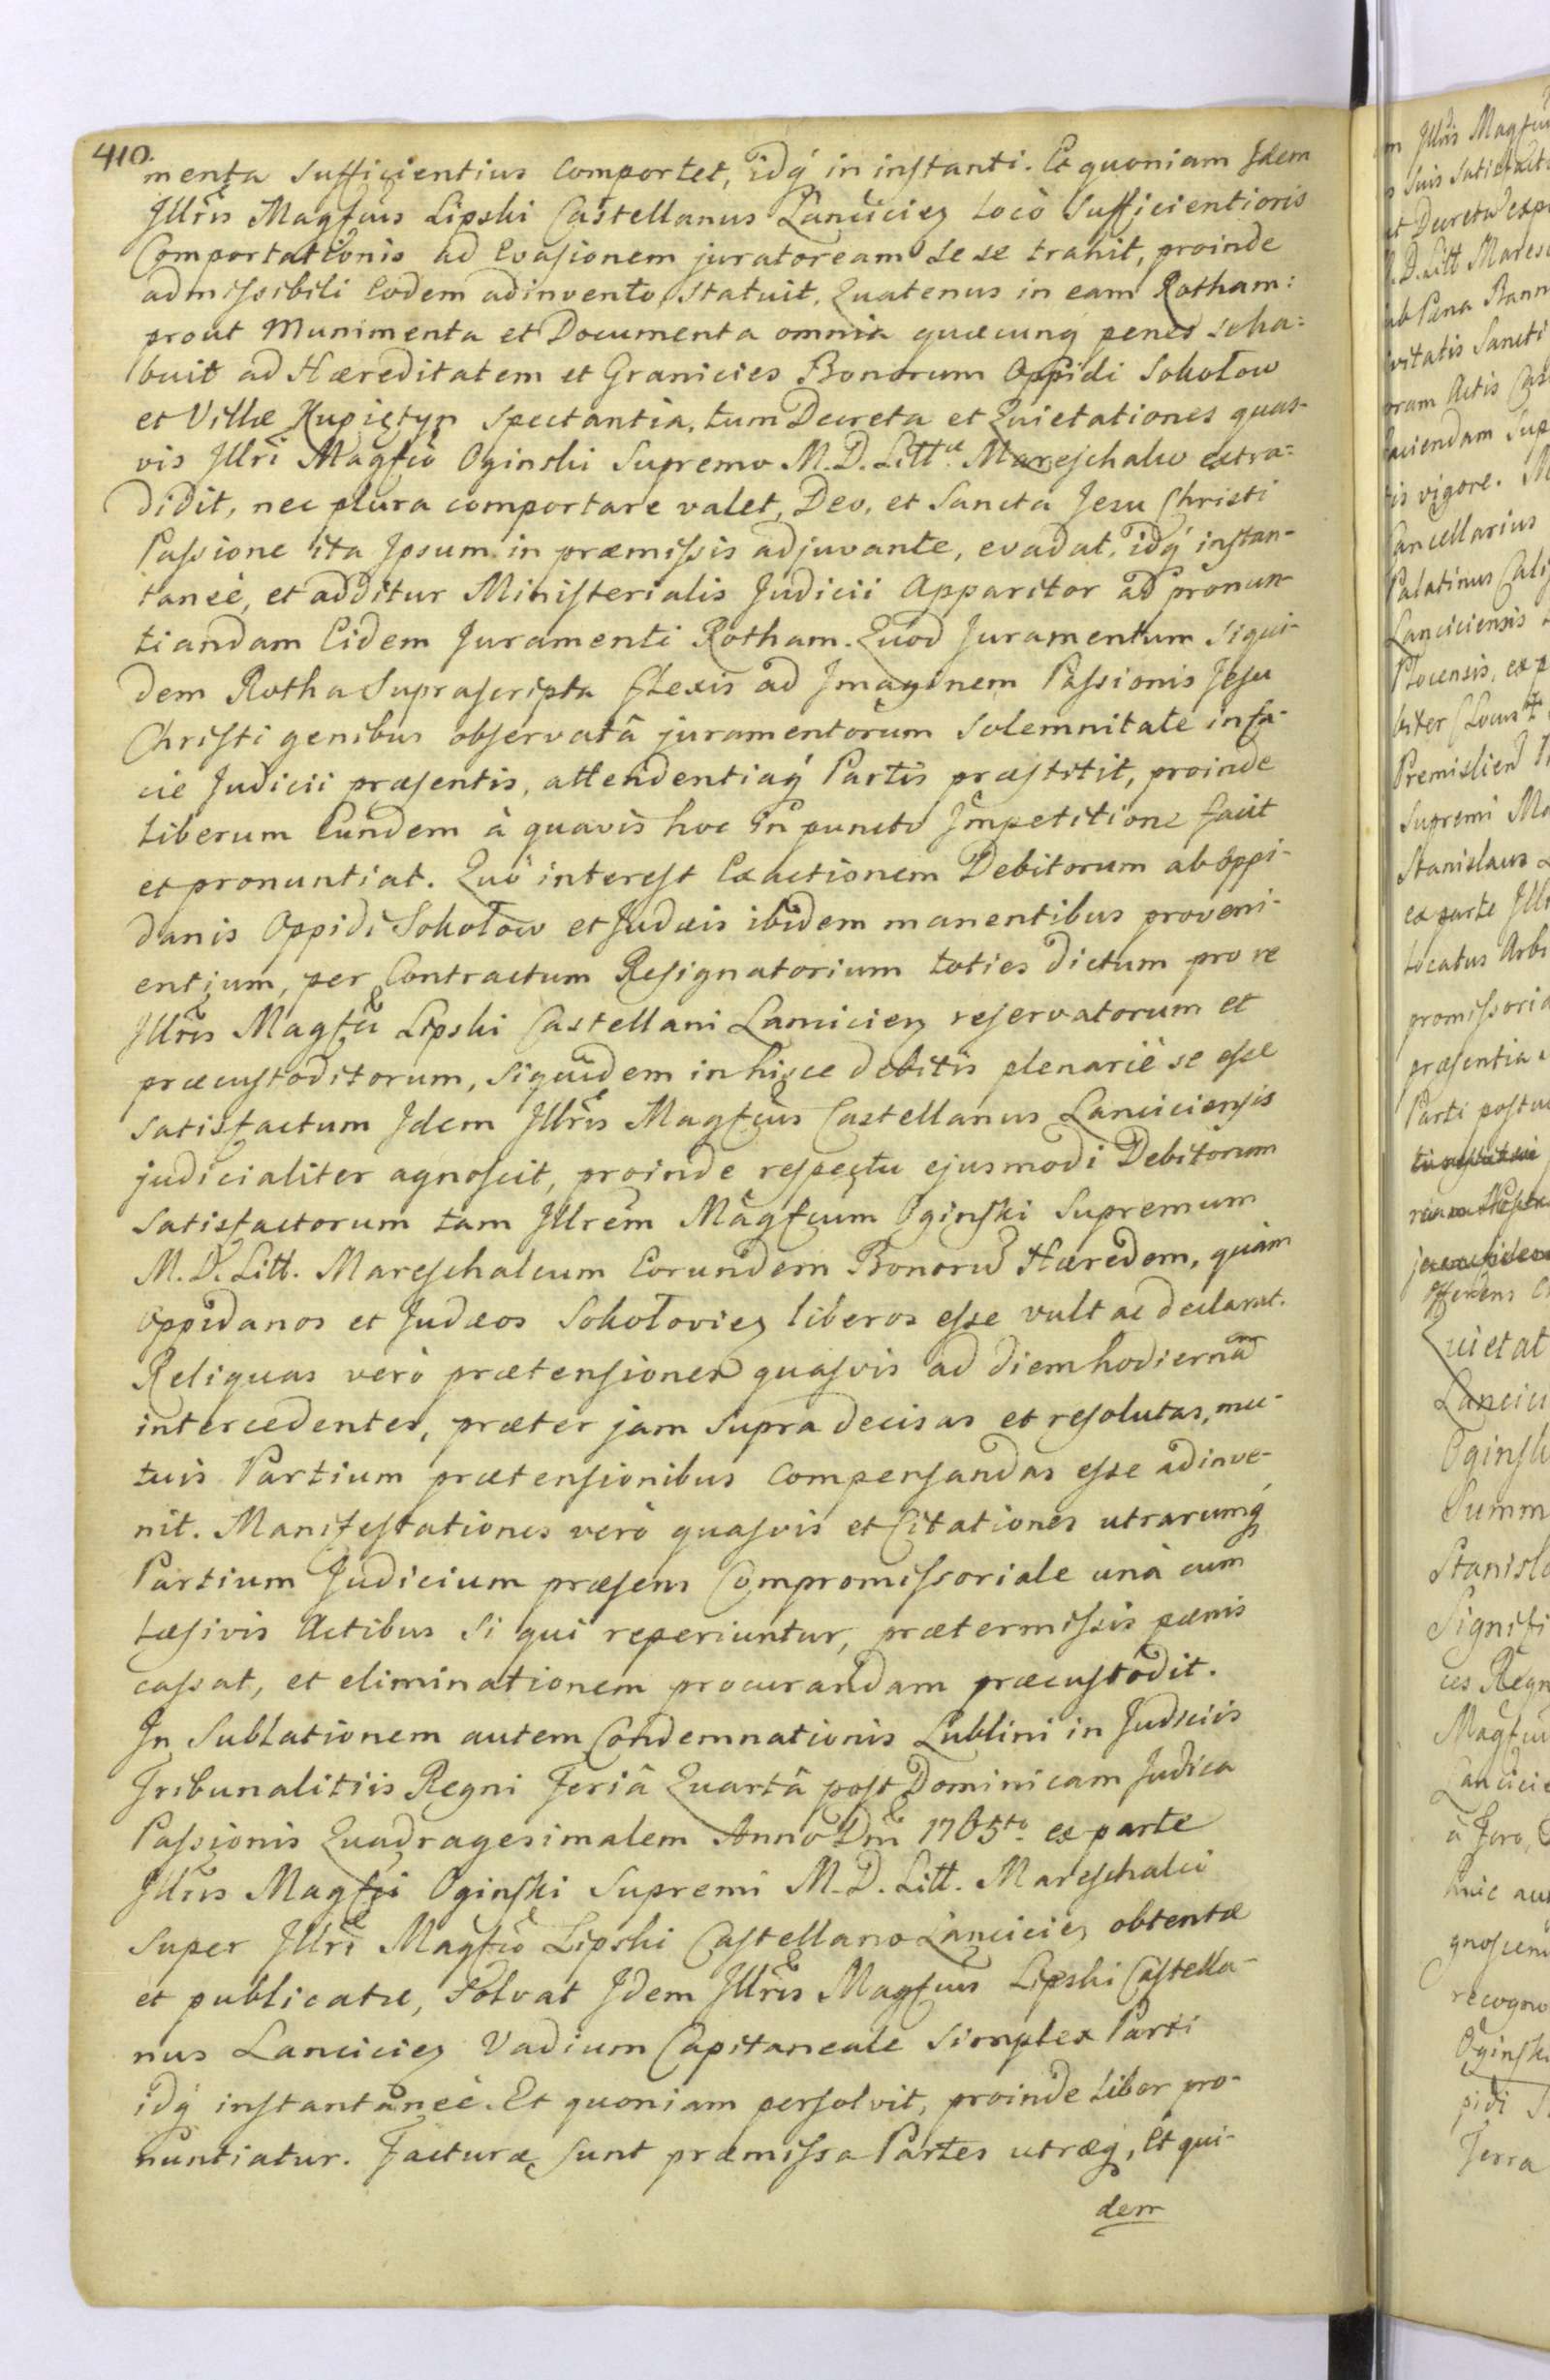 410.
menta sufficientius comportet, idq́ in instanti. Et quoniam Idem
Illris Magfcus Lipski Castellanus Lancicien loco Sufficientioris
Comportationis ad Evasionem juratoream se se trahit, proinde
admissibili Eodem adinvento, statuit, Quatenus in eam Rotham:
prout Munimenta et Documenta omnia quæcunq́ penes se ha:
buit ad Hæreditatem et Granicies Bonorum Oppidi Sokołow
et Villæ Kupiętyn spectantia, tum Decreta et Quietationes quas-
vis Illri Magfco Oginski Supremo M. D. Littæ Mareschalco extra:
didit, nec plura comportare valet, Deo, et Sancta Jesu Christi
Passione ita Ipsum in præmissis adjuvante, evadat, idq́ instan-
taneè, et additur Ministerialis Judicii Apparitor ad pronun
tiandam Eidem Juramenti Rotham. Quod Juramentum siqui-
dem Rotha Suprascripta flexis ad Imaginem Passionis Jesu
Christi genibus observatâ juramentorum Solemnitate in fa-
cie Judicii præsentis, attendentiaq́ Partis præstitit, proinde
liberum Eundem à quavis hoc in puncto Impetitione facit
et pronuntiat. Quò interest Exactionem Debitorum ab oppi-
danis Oppidi Sokołow et Judæis ibidem manentibus proveni-
entium, per Contractum Resignatorium toties dictum pro re
Illris Magfci Lipski Castellani Lancicien reservatorum et
præcustoditorum, siquidem in hisce debitis plenariè se esse
satisfactum Idem Illris Magfcus Castellanus Lanciciensis
judicialiter agnoscit, proinde respectu ejusmodi Debitorum
satisfactorum tam Illrem Magfcum Oginski Supremum
M. D. Litt. Mareschalcum Eorundem Bonorũ Hæredem, quàm
oppidanos et Judæos Sokołovien liberos esse vult ac declarat.
Reliquas verò prætensiones quasvis ad diem hodiernam
intercedentes, præter jam supra decisas et resolutas, mu-
tuis Partium prætensionibus compensandas esse adinve-
nit. Manifestationes verò quasvis et Citationes utrarumq́
Partium Judicium præsens Compromissoriale unà cum
læsivis Actibus si qui reperiuntur, prætermissis pænis
cassat, et eliminationem procurandam præcustodit.
In Sublationem autem Condemnationis Lublini in Judiciis
Tribunalitiis Regni Feriâ Quartâ post Dominicam Judica
Passionis Quadragesimalem Anno Dni 1765to ex parte
Illris Magfci Oginski Supremi M. D. Litt. Mareschalci
super Illri Magfco Lipski Castellano Lancicien obtentæ
et publicatæ, solvat Idem Illris Magfcus Lipski Castella-
nus Lancicien Vadium Capitaneale simplex Parti
idq́ instantaneè. Et quoniam persolvit, proinde liber pro-
nuntiatur. Facturæ sunt præmissa Partes utræq́, Et qui-
dem